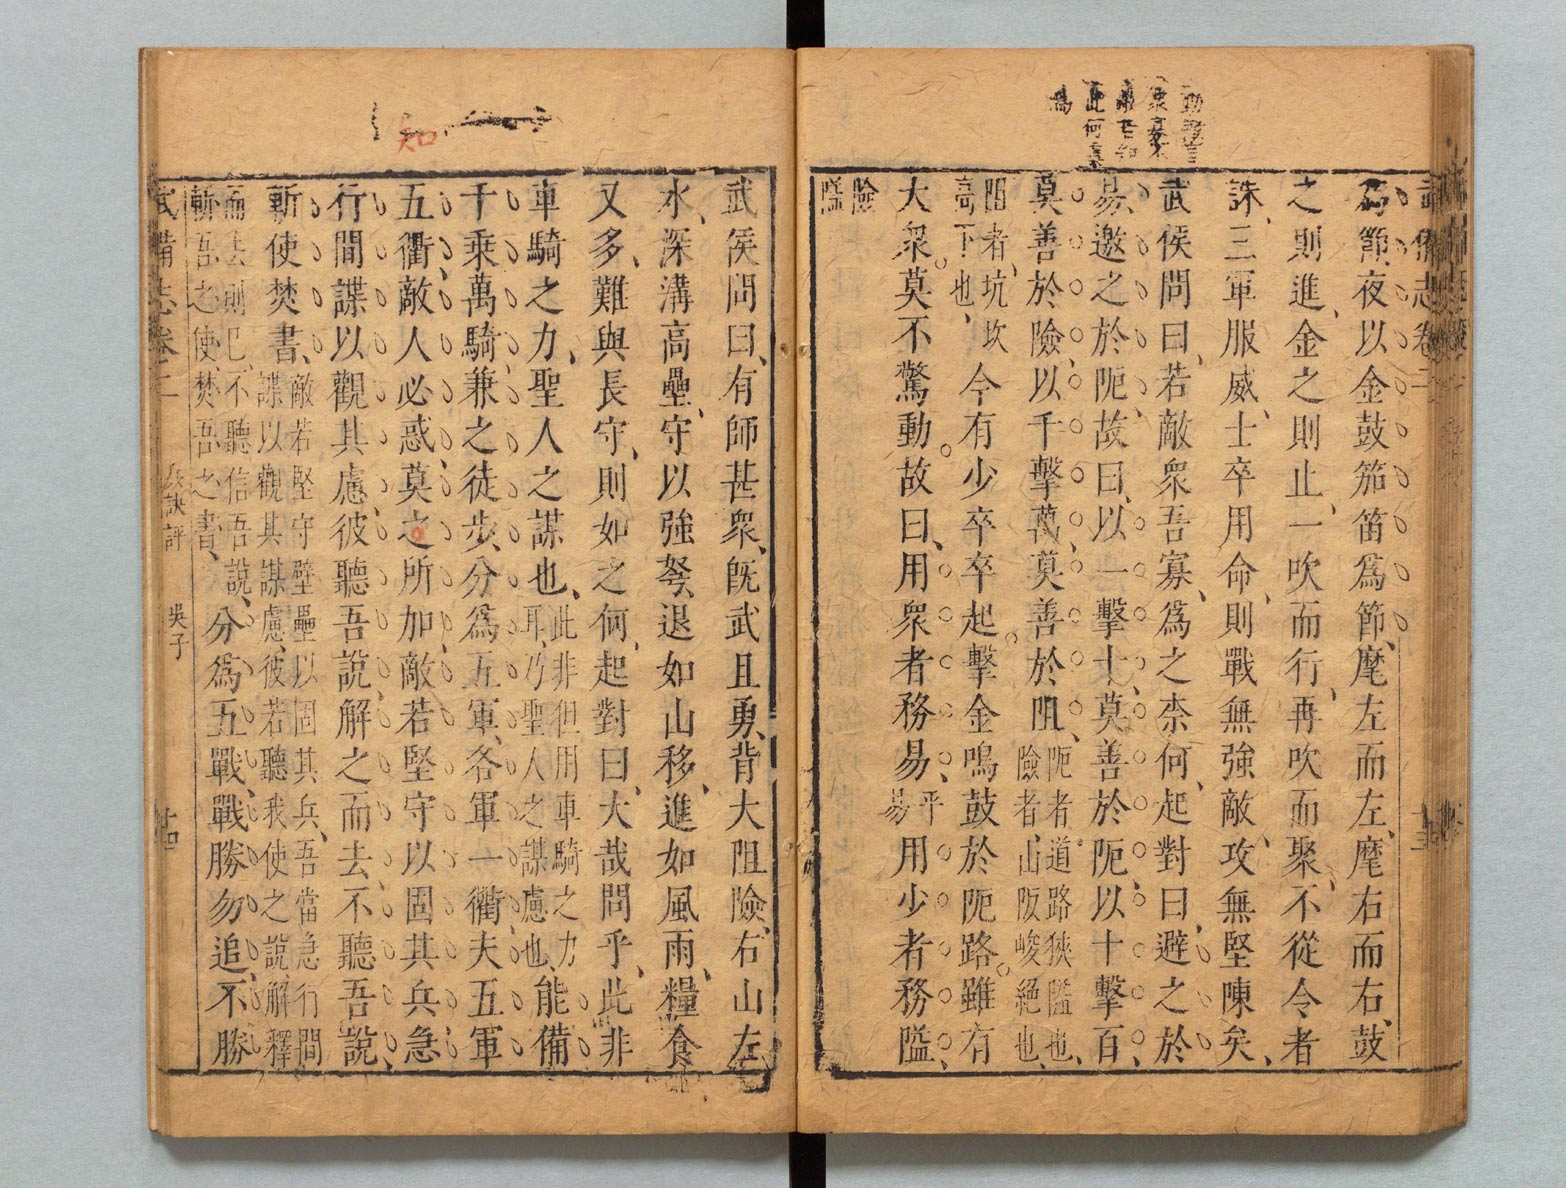 武備志卷二
爲節夜以金鼓笳笛爲節麾左而左麾右而右鼓
之則進金之則止一吹而行再吹而聚不從令者
誅三軍服威士卒用命則戰無強敵攻無堅陳矣
武侯問曰若敵衆吾寡爲之柰何起對曰避之於
易邀之於阨故曰以一擊十莫善於阨以十擊百
莫善於險以千擊萬莫善於阻阨者道路狹隘也
險者山阪峻絕也
阻者坑坎
高下也今有少卒卒起擊金鳴鼓於阨路雖有
大衆莫不驚動故曰用衆者務易平
易用少者務隘
險
隘
知
武侯問曰有師甚衆既武且勇背大阻險右山左
水深溝高壘守以強弩退如山移進如風雨糧食
又多難與長守則如之何起對曰大哉問乎此非
車騎之力聖人之謀也此非但用車騎之力
耳乃聖人之謀慮也能備
千乘萬騎兼之徒步分爲五軍各軍一衢夫五軍
五衢敵人必惑莫之所加敵若堅守以固其兵急
行間諜以觀其慮彼聽吾說解之而去不聽吾說
斬使焚書敵若堅守壁壘以固其兵吾當急行間
諜以觀其謀慮彼若聽我使之說解釋
而去則已不聽信吾說
斬吾之使焚吾之書分爲五戰戰勝勿追不勝
武備志卷二 兵訣評 吳子 十四